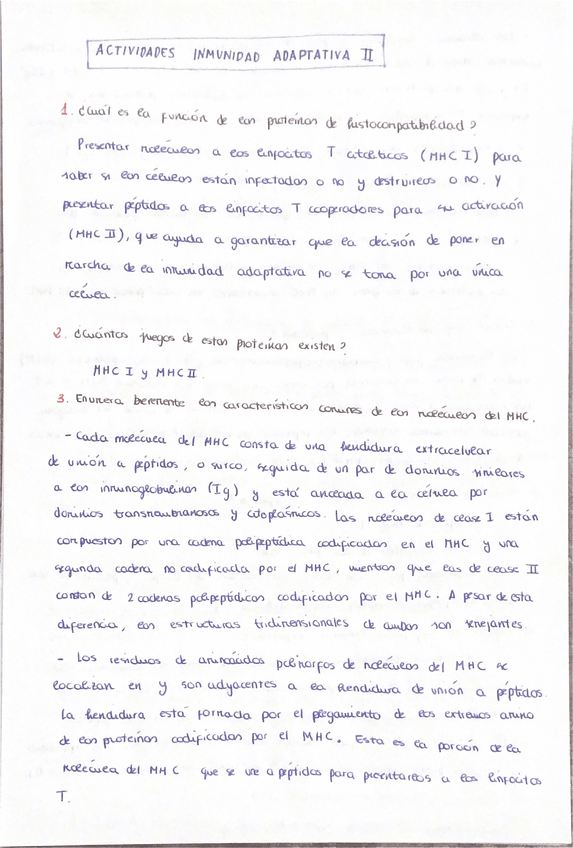 ACTIVIDADES INMUNIDAD ADAPTATIVA II
1. ¿Cuál es la función de las proteínas de histocompatibilidad?
Presentar moléculas a los linfocitos T citolíticos (MHC I) para
saber si las células están infectadas o no y destruirlas o no. Y
presentar péptidos a los linfocitos T cooperadores para su activación
(MHC II), que ayuda a garantizar que la decisión de poner en
marcha de la inmunidad adaptativa no se toma por una única
célula.
2. ¿Cuántos juegos de estas proteínas existen?
MHC I y MHC II.
3. Enumera brevemente las características comunes de las moléculas del MHC.
- Cada molécula del MHC consta de una hendidura extracelular
de unión a péptidos, o surco, seguida de un par de dominios similares
a las inmunoglobulinas (Ig) y está anclada a la célula por
dominios transmembranosos y citoplásmicos. Las moléculas de clase I están
compuestas por una cadena polipeptídica codificadas en el MHC y una
segunda cadena no codificada por el MHC, mientras que las de clase II
constan de 2 cadenas polipeptídicas codificadas por el MHC. A pesar de esta
diferencia, las estructuras tridimensionales de ambas son semejantes.
- Los residuos de aminoácidos polimorfos de moléculas del MHC se
localizan en y son adyacentes a la hendidura de unión a péptidos.
La hendidura está formada por el plegamiento de los extremos amino
de las proteínas codificadas por el MHC. Esta es la porción de la
molécula del MHC que se une a péptidos para presentarlos a los linfocitos
T.